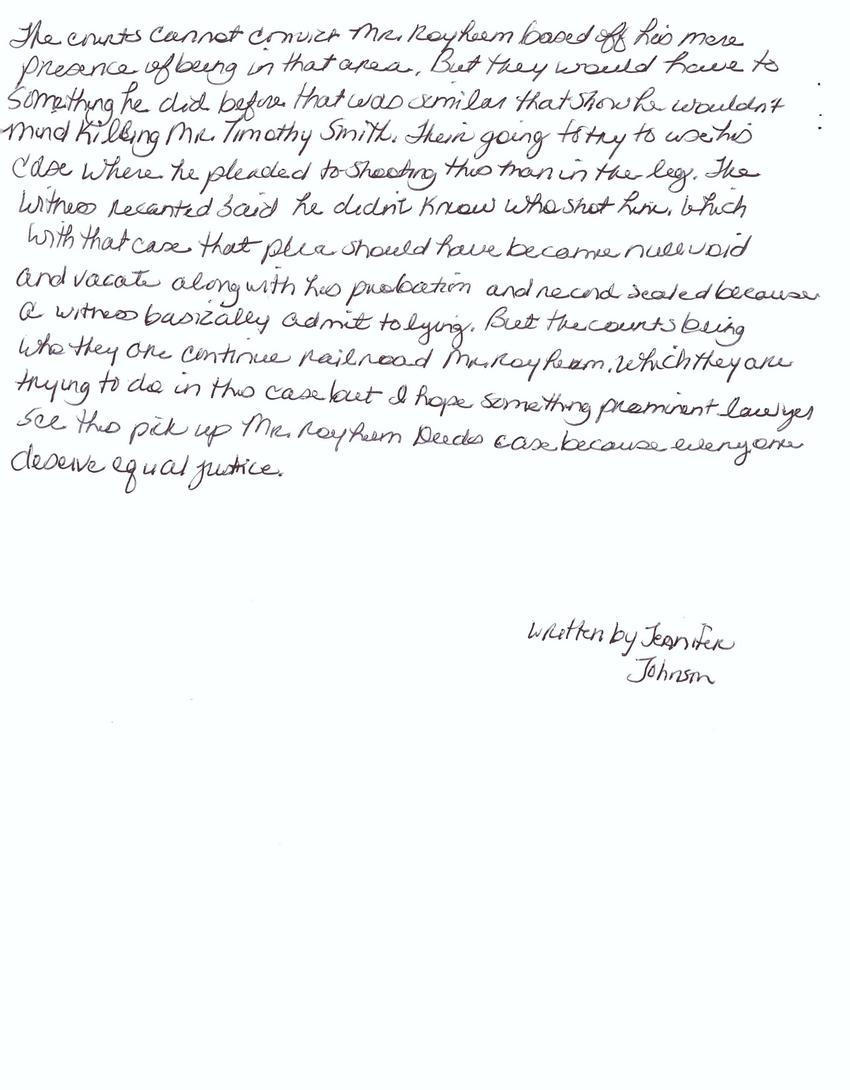 The courts cannot convict Mr. Rayheem based off his mere
presence of being in that area. But they would have to
something he did before that was similar that show he wouldn't
mind killing Mr. Timothy Smith. Their going to try to use his
case where he pleaded to shooting this man in the leg. The
witness recanted said he didn't know who shot him. Which
with that case that plea should have became null void
and vacate along with his probation and record sealed because
a witness basically admit to lying. But the courts being
who they are continue railroad Mr. Rayheem. Which they are
trying to do in this case but I hope something prominent lawyer
see this pick up Mr. Rayheem Deeds case because everyone
deserve equal justice.
Written by Jennifer
Johnson